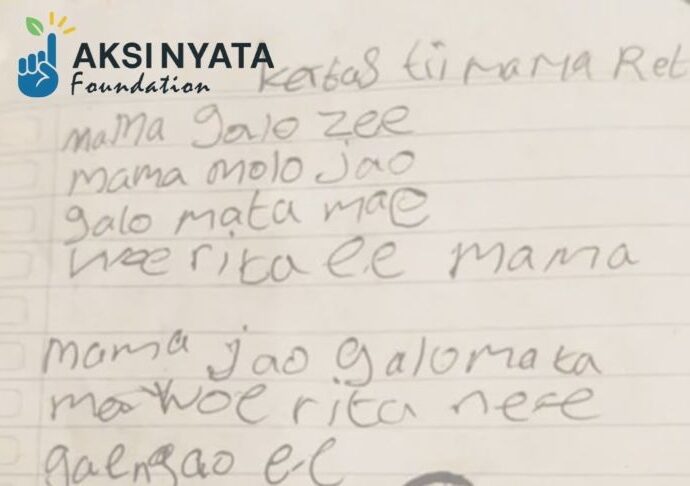 AKSI NYATA
Foundation
Kertas tii mama Ret
mama galo zee
mama molo jao
galo mata mae
woe rita e.e mama
mama jao galo mata
mae woe rita ne e
gaengao e.e